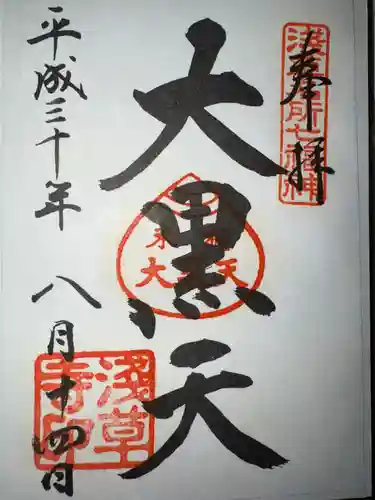 奉拝
浅草名所七福神
大黒天
大黒天
平成三十年
八月十四日
浅草
寺印